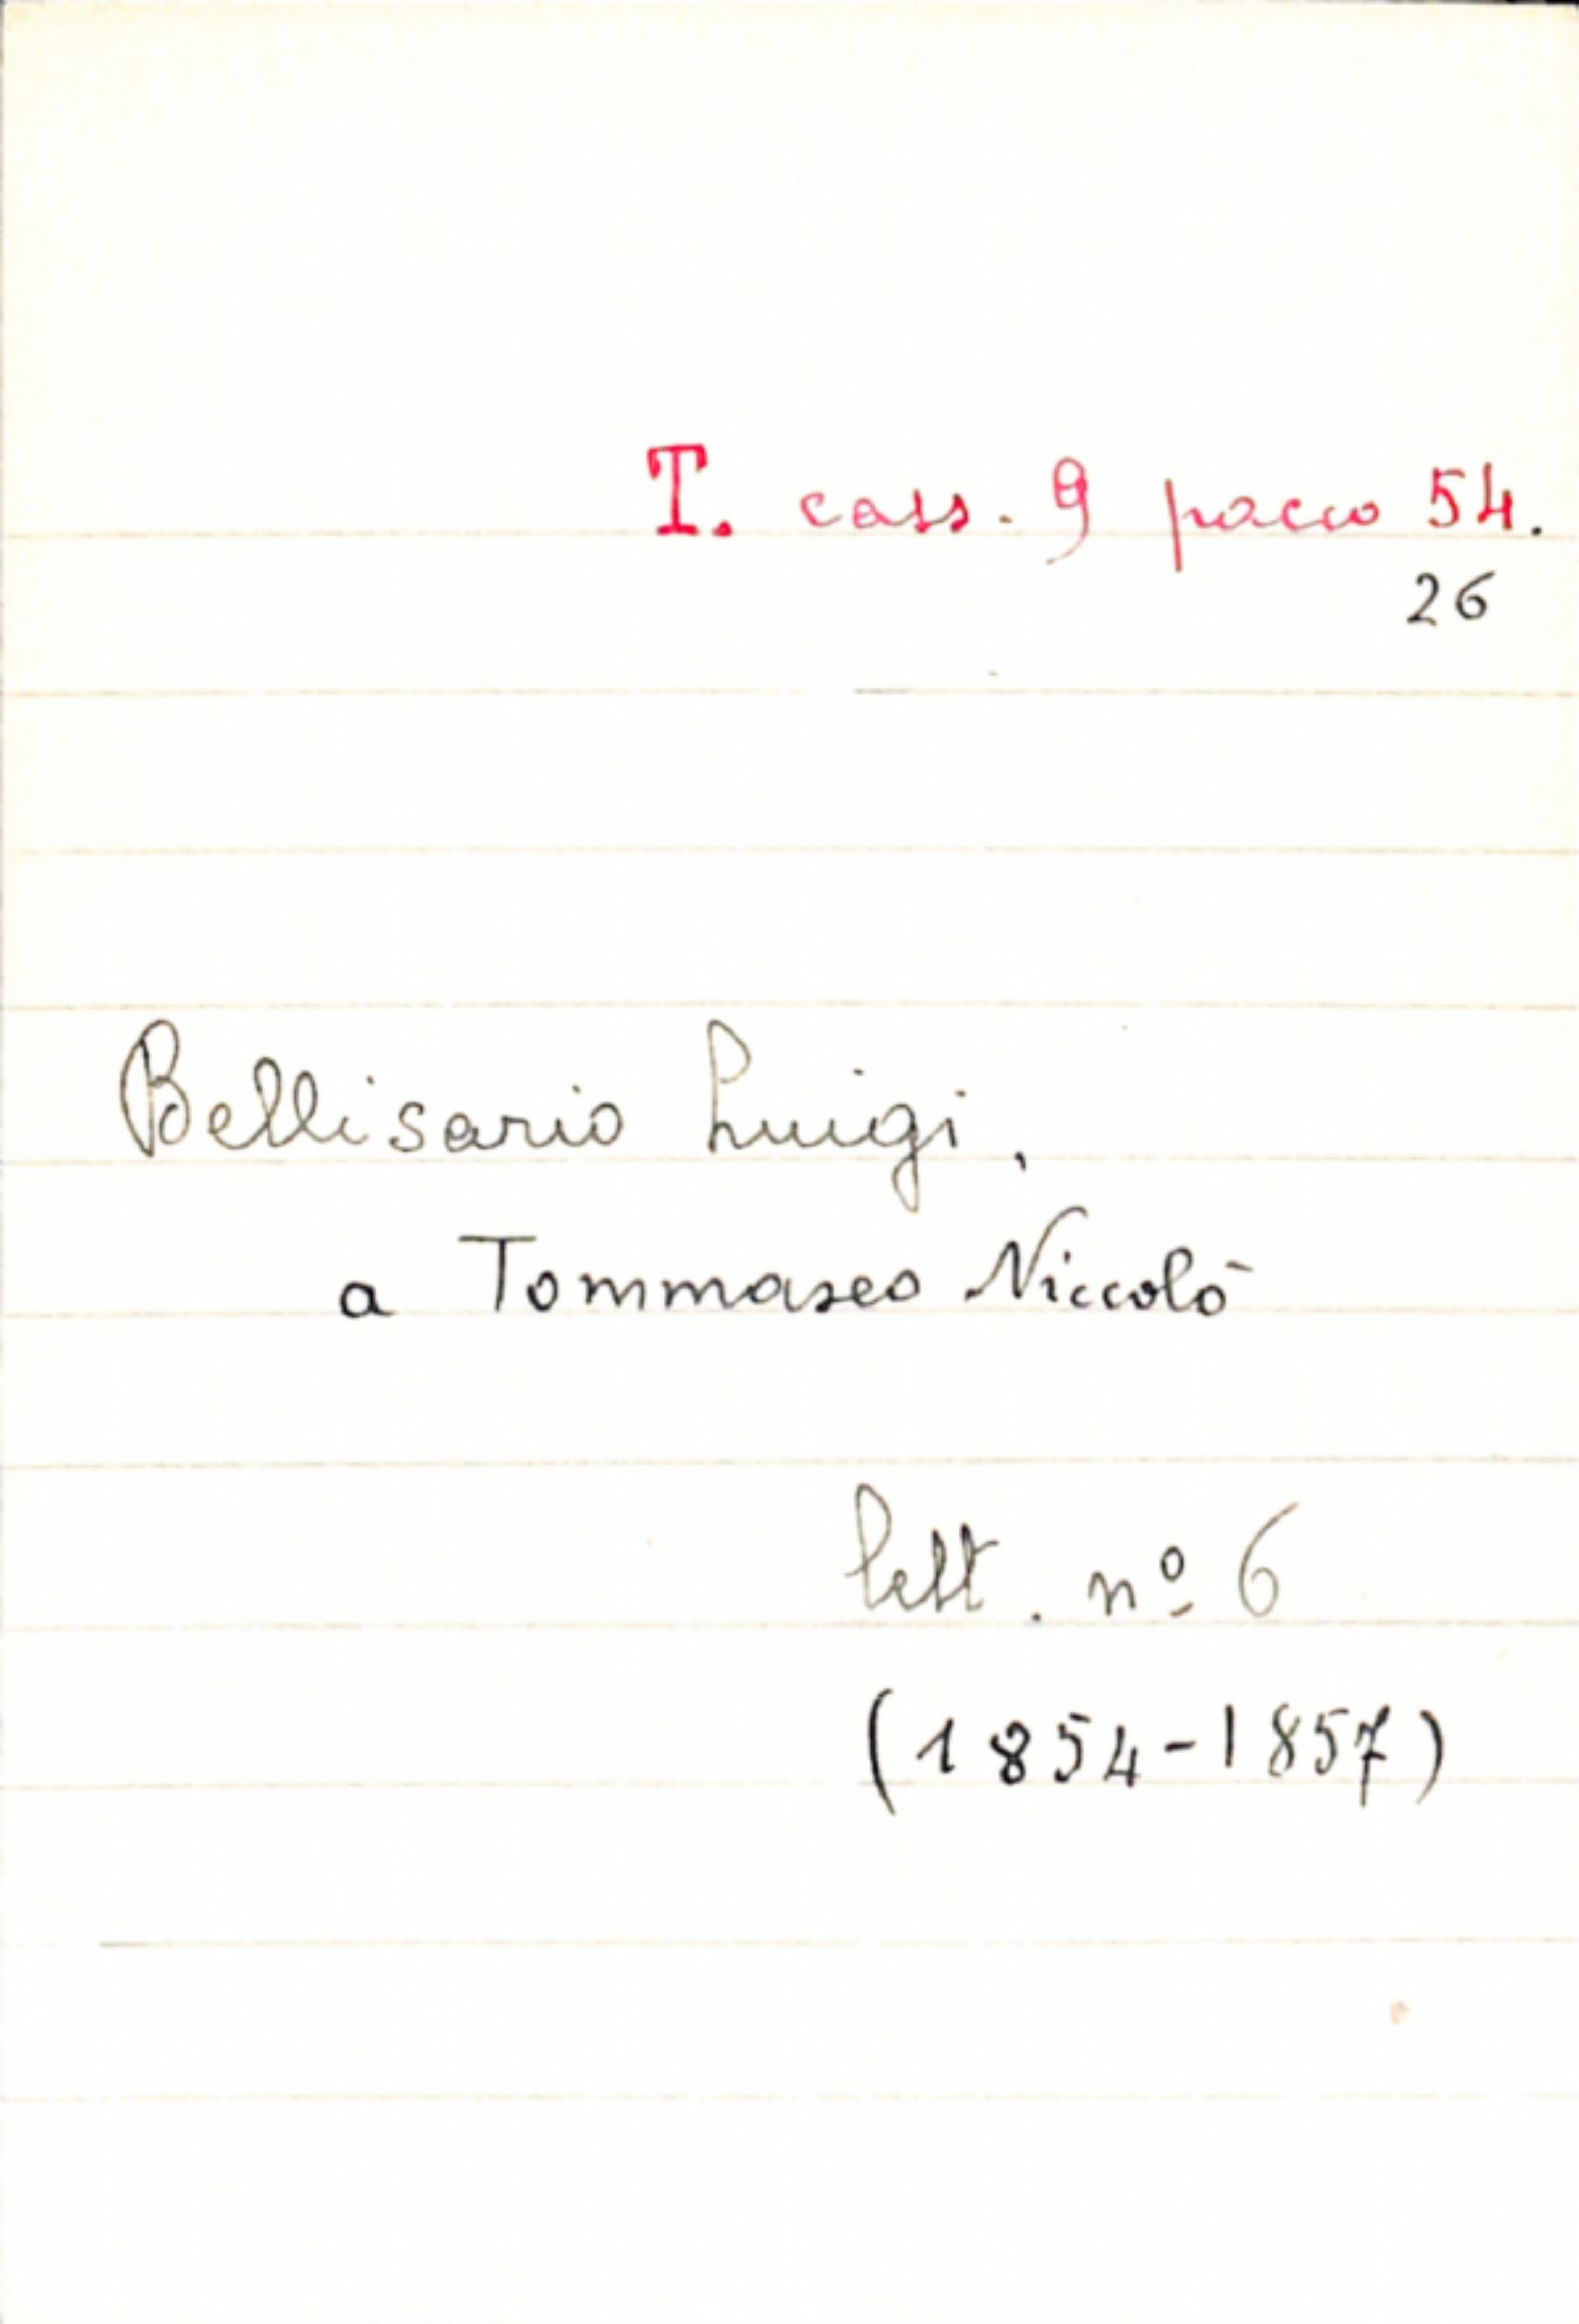 T. cass. 9 pacco 54.
26
Bellisario Luigi,
a Tommaseo Niccolò
lett. nº 6
(1854-1857)